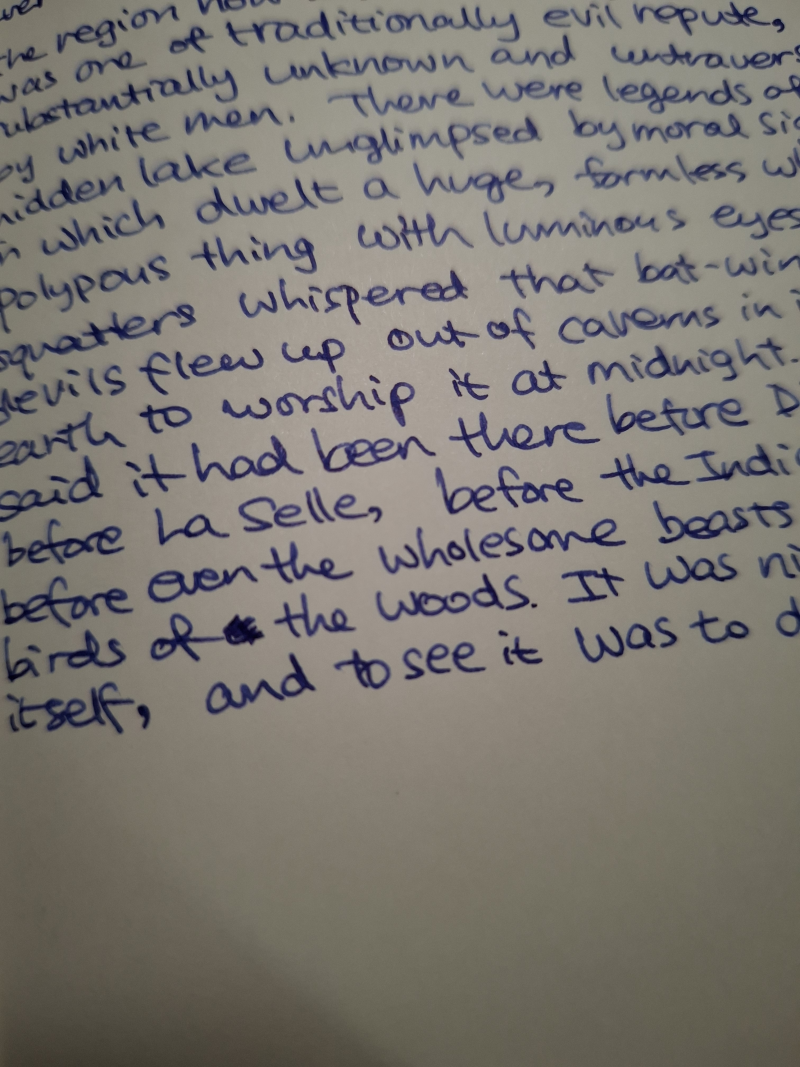 the region
was one of traditionally evil repute,
substantially unknown and untravers
by white men. There were legends of
hidden lake unglimpsed by moral sig
in which dwelt a huge, formless wh
polypous thing with luminous eyes
squatters whispered that bat-win
devils flew up out of caverns in i
earth to worship it at midnight.
said it had been there before D
before La Selle, before the Indi
before even the wholesome beasts
birds of the woods. It was ni
itself, and to see it was to d